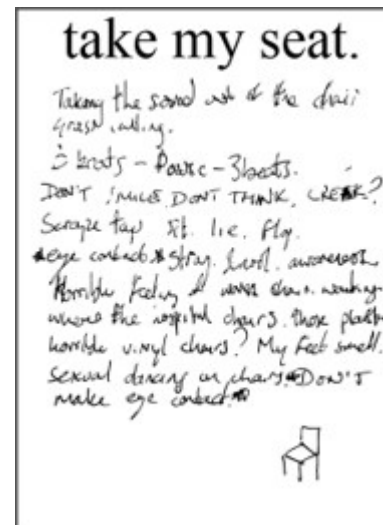 take my seat.
Taking the sound out of the chair
3 beats – Pause – 3 beats.
DON'T SMILE. DONT THINK, CREAK?
Scrape tap sit. lie. flop.
eye contact string. level. awareness.
Horrible feeling of
where the hospital chairs. those plastic
horrible vinyl chairs? My feet smell.
sexual dancing on chairs. DON'T
make eye contact.